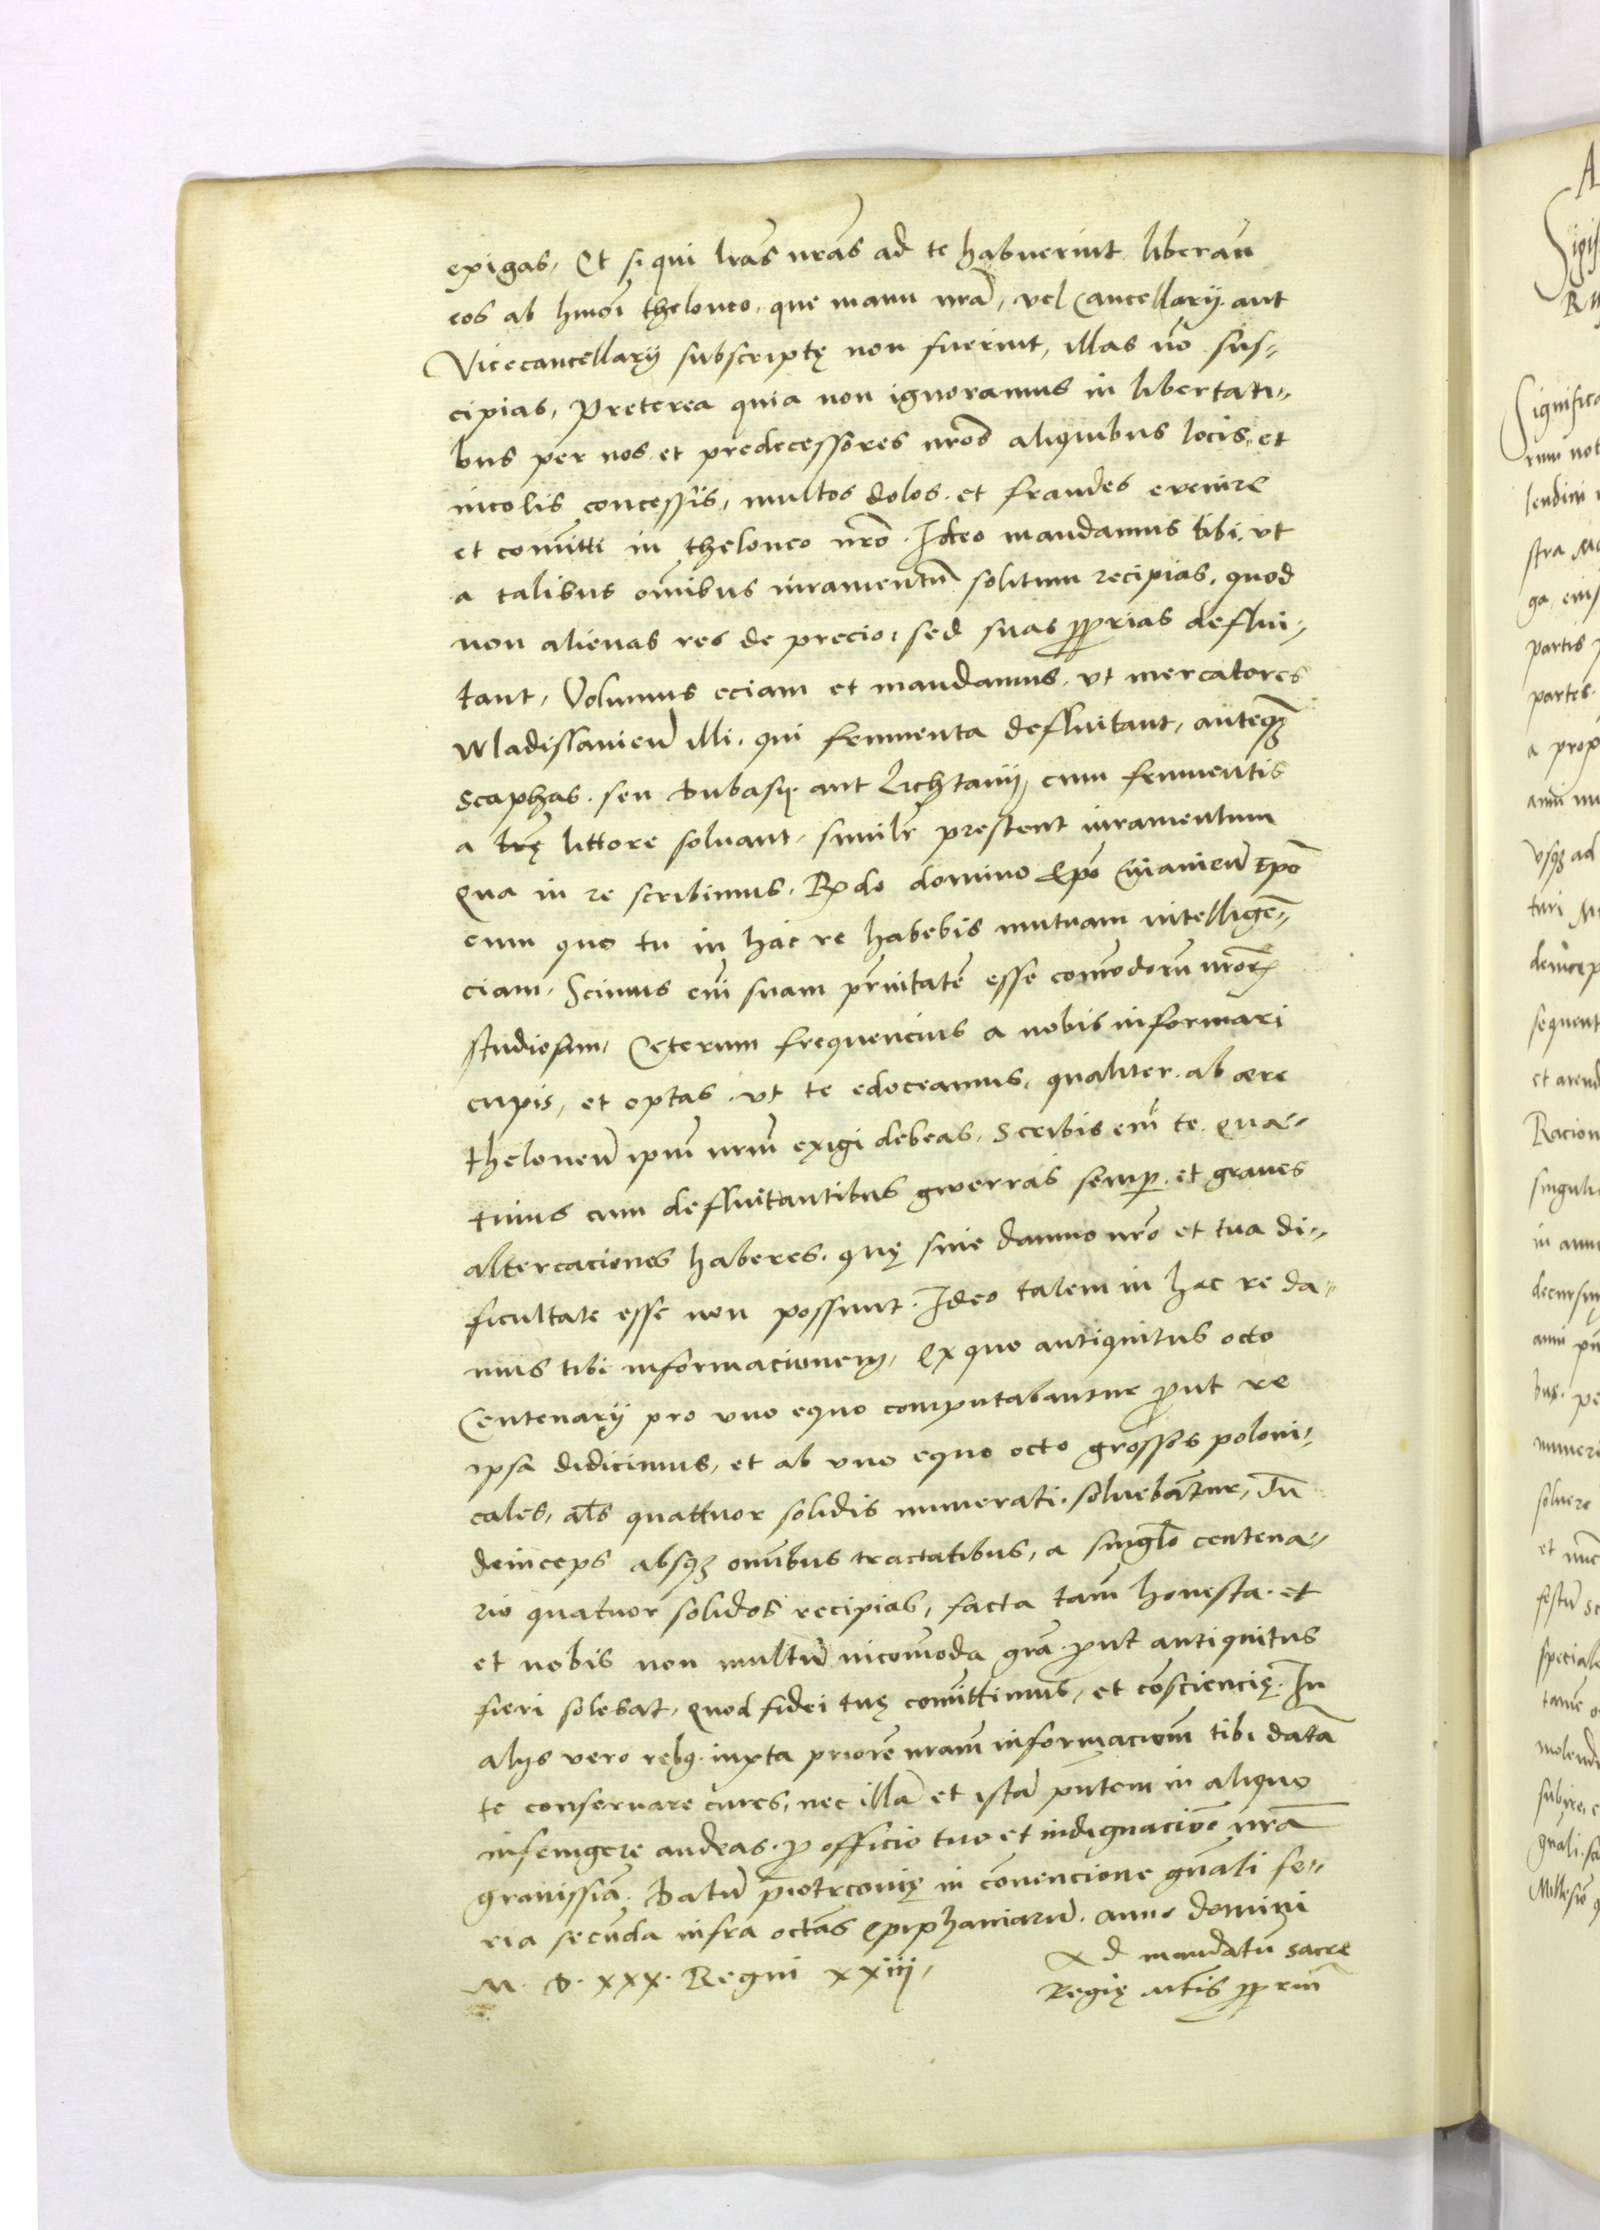 exigas, Et si qui lras nras ad te habuerint liberan̄
eos ab hmōi theloneo, que manu nrā, vel Cancellarij aut
Vicecancellarij subscriptę non fuerint, illas nō sus-
cipias, Preterea quia non ignoramus in libertati-
bus per nos et predecessores nrōs aliquibus locis, et
incolis concessis, multos dolos et fraudes evenire
et cōmitti in theloneo nrō. Ideo mandamus tibi, vt
a talibus om̄ibus iuramentū solitum recipias, quod
non alienas res de precio, sed suas ꝓprias deflui-
tant, Volumus eciam et mandamus, vt mercatores
Wladislauien̄ illi, qui frumenta defluitant, anteqꝫ
scaphas, seu dubasij aut Lichtanij, cum frumentis
a littore soluant, similr̄ prestent iuramentum
Qua in re scribimus, Rdo domino Ep̄o Cuiauien̄
cum quo tu in hac re habebis mutuam intelligen̄-
ciam, Scimus em̄ suam pr̄nitatē esse com̄odorū nrōꝝ
studiosam, Ceterum frequencius a nobis informari
cupis, et optas, vt te edoceamus, qualiter ab aere
theloneū ipm̄ nrm̄ exigi debeas, Scribis em̄ te, qua-
tinus cum defluitantibus gwerras semꝑ et graues
altercaciones haberes, quę sine damno nrō et tua di-
ficultate esse non possunt, Ideo talem in hac re da-
mus tibi informacionem, Ex quo antiquitus octo
Centenarij pro uno equo computabantur ꝓut re
ipsa didicimus, et ab uno equo octo grossos poloni-
cales, al̄s quattuor solidis numerati soluebātur,
deinceps absqꝫ om̄ibus tractatibus, a singlo centena-
rio quatuor solidos recipias, facta tam̄ honesta et
et nobis non multū incom̄oda grā ꝓut antiquitus
fieri solebat, quod fidei tuę com̄ittimus, et cōsciencię. In
alijs vero rebꝯ iuxta priorē nram̄ informaciom̄ tibi datā
te conseruare cures, nec illā et istā pn̄tem in aliquo
infringere audeas, ꝓ officio tuo et indignaciōe nrā
grauissiā. Datū Piotrconię in cōuencione gn̄ali fe-
ria secūda infra octās epiphaniarū. anno domini
M. D. XXX. Regni XXiiij,
Ad mandatū sacre
Regię Mtis ꝓprm̄